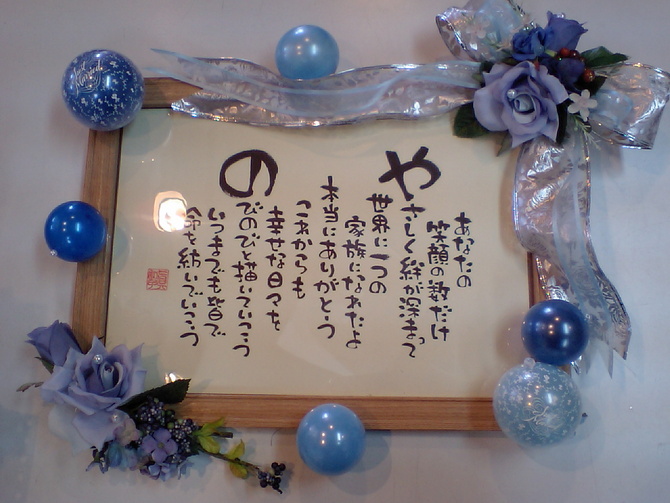 あなたの
笑顔の数だけ
やさしく絆が深まって
世界に一つの
家族になれたよ
本当にありがとう
これからも
幸せな日々を
のびのびと描いていこう
いつまでも皆で
命を紡いでいこう